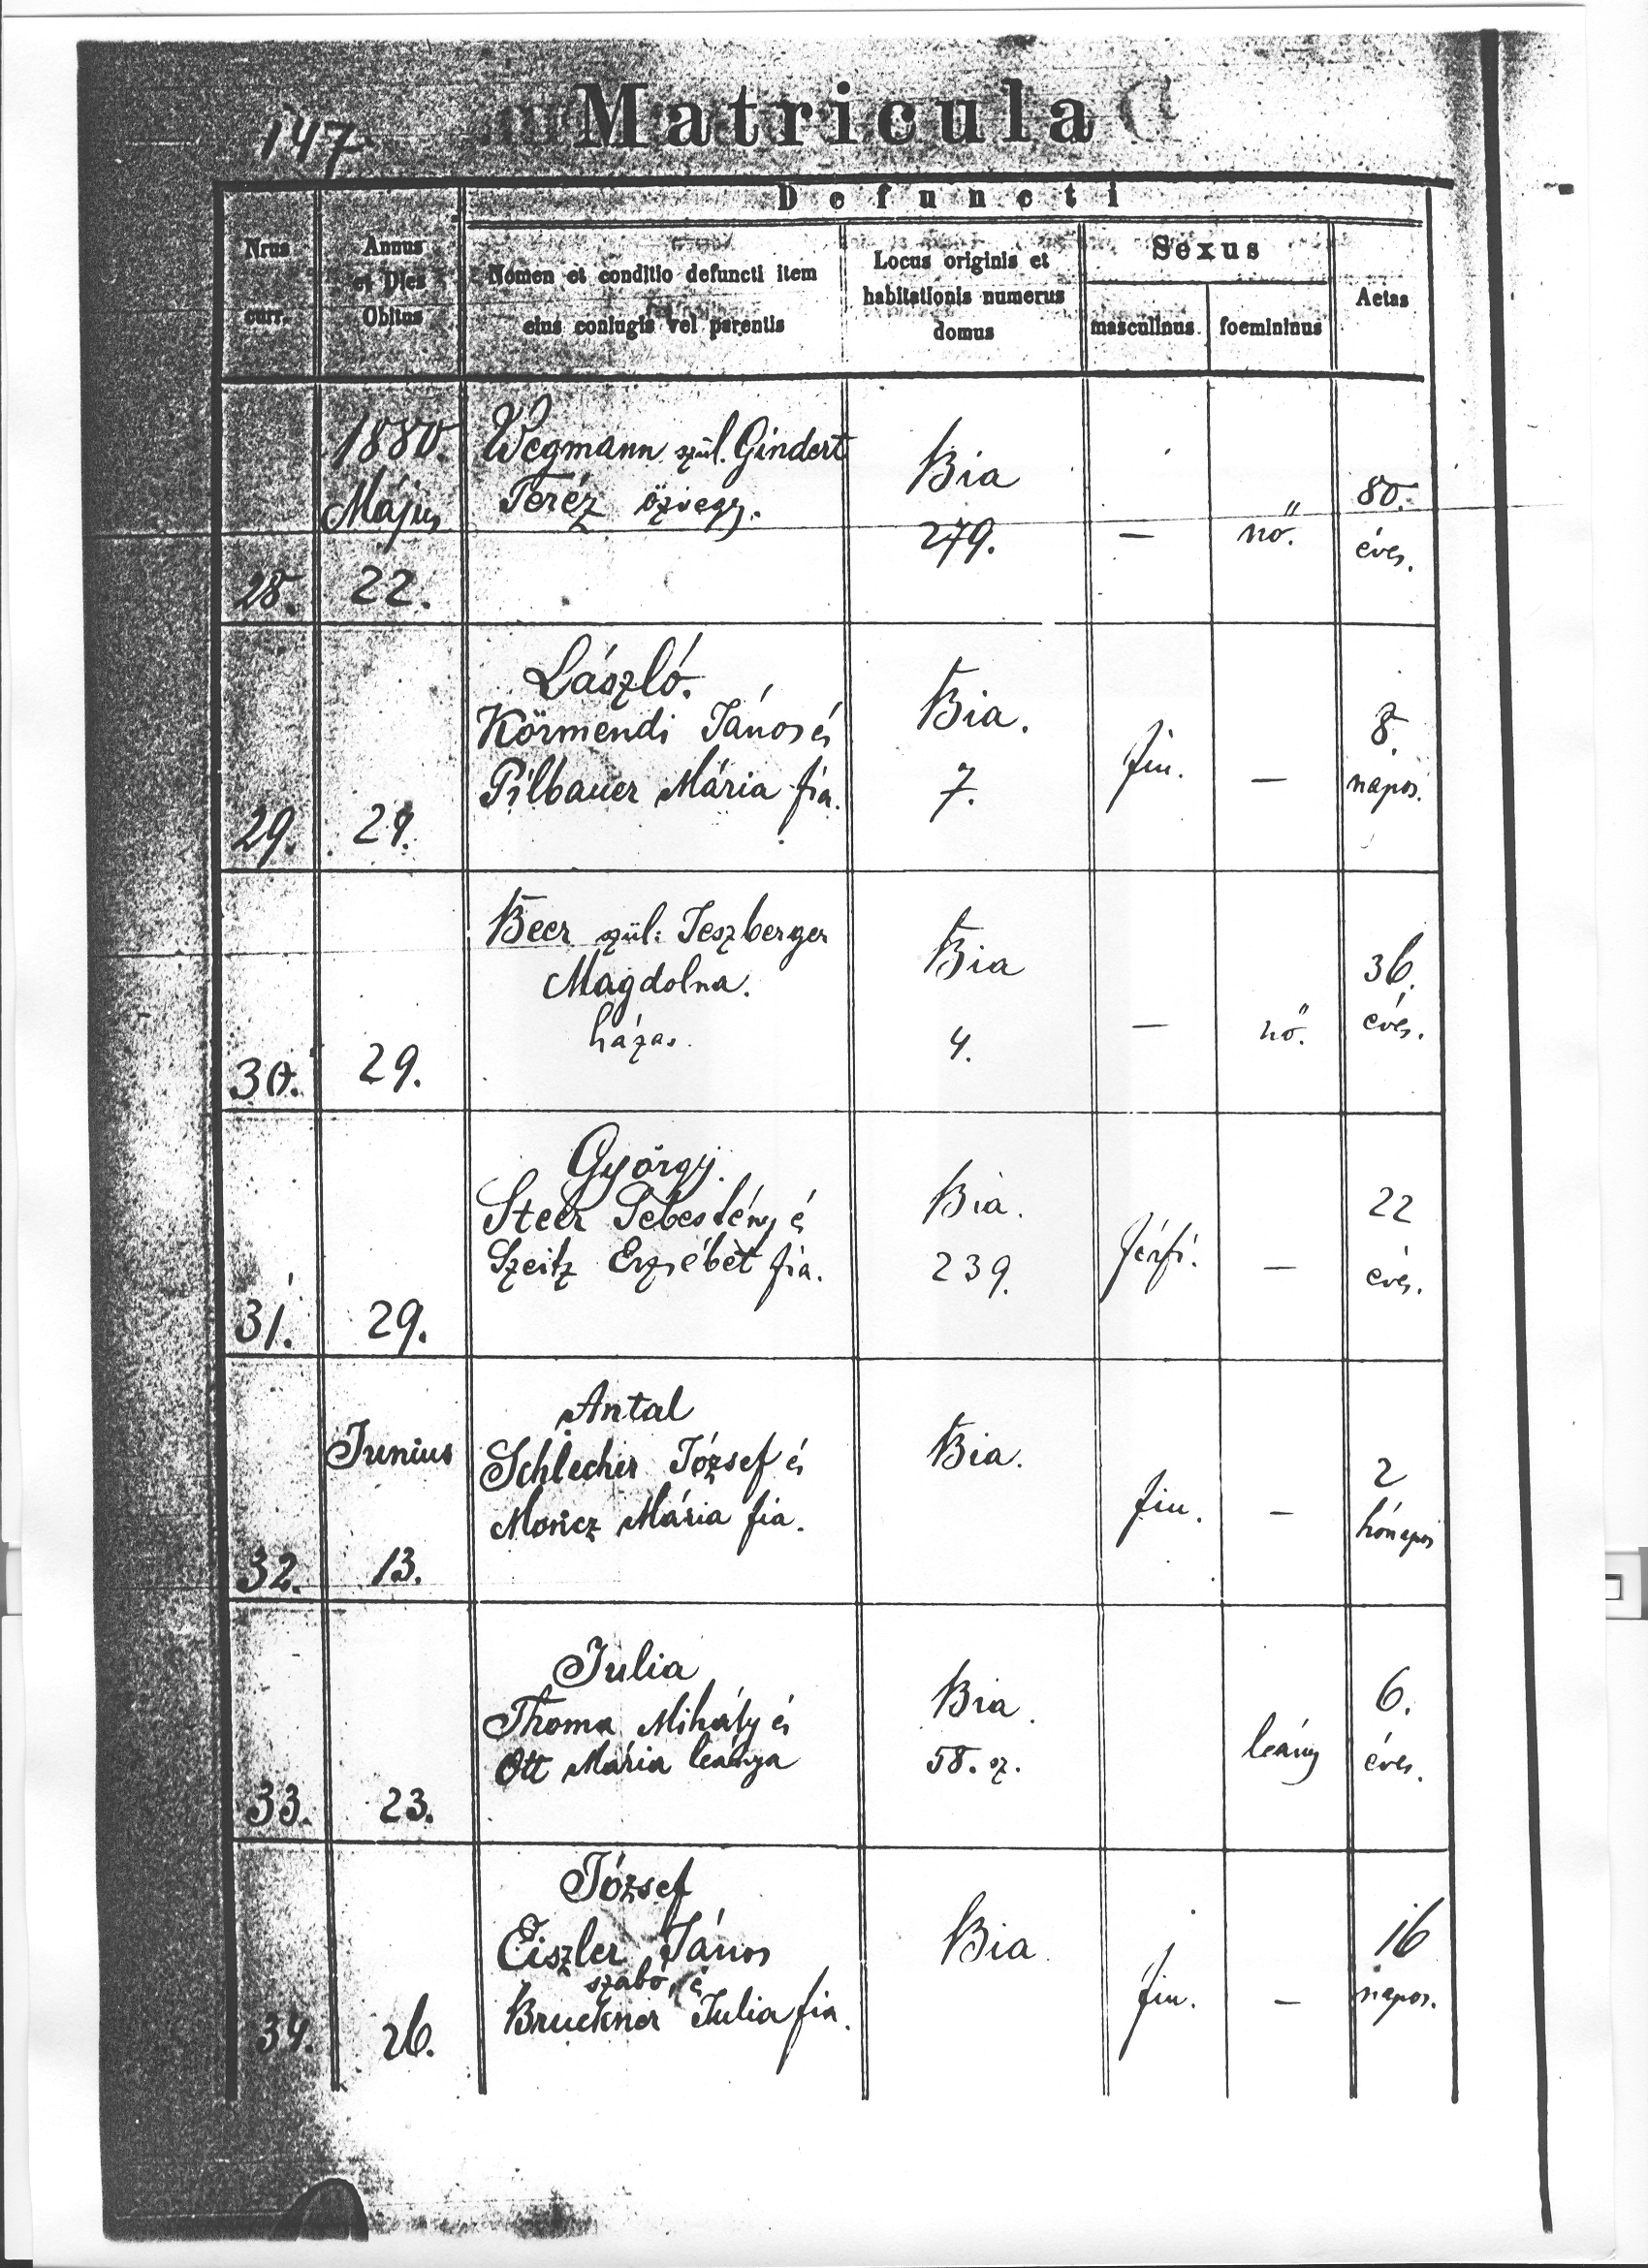 147.
Matricula
Defuncti
Nrus
curr.
Annus
et Dies
Obitus
Nomen et conditio defuncti item
eius coniugis vel parentis
Locus originis et
habitationis numerus
domus
Sexus
masculinus
foemininus
Aetas
1880.
Május
28. 22.
Wegmann szül. Gindert
Teréz özvegy.
Bia
279.
—
nő.
80.
éves.
29.
László.
Körmendi János és
Pilbauer Mária fia.
Bia.
7.
fiu.
—
8.
napos.
30. 29.
Beer szül: Jeszberger
Magdolna.
házas.
Bia
4.
—
nő.
36.
éves.
31. 29.
György.
Steer Sebestény és
Szeitz Erzsébet fia.
Bia.
239.
férfi.
—
22
éves.
Junius
32. 13.
Antal
Schlecher József és
Moricz Mária fia.
Bia.
fiu.
—
2
hónapos
33. 23.
Julia
Thoma Mihály és
Ott Mária leánya
Bia.
58. sz.
leány
6.
éves.
34. 26.
József
Eiszler János
szabó, és
Bruckner Julia fia.
Bia.
fiu.
—
16
napos.